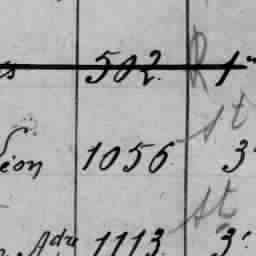 502 R 1
st
éon 1056 3
st
Adre 1113 3